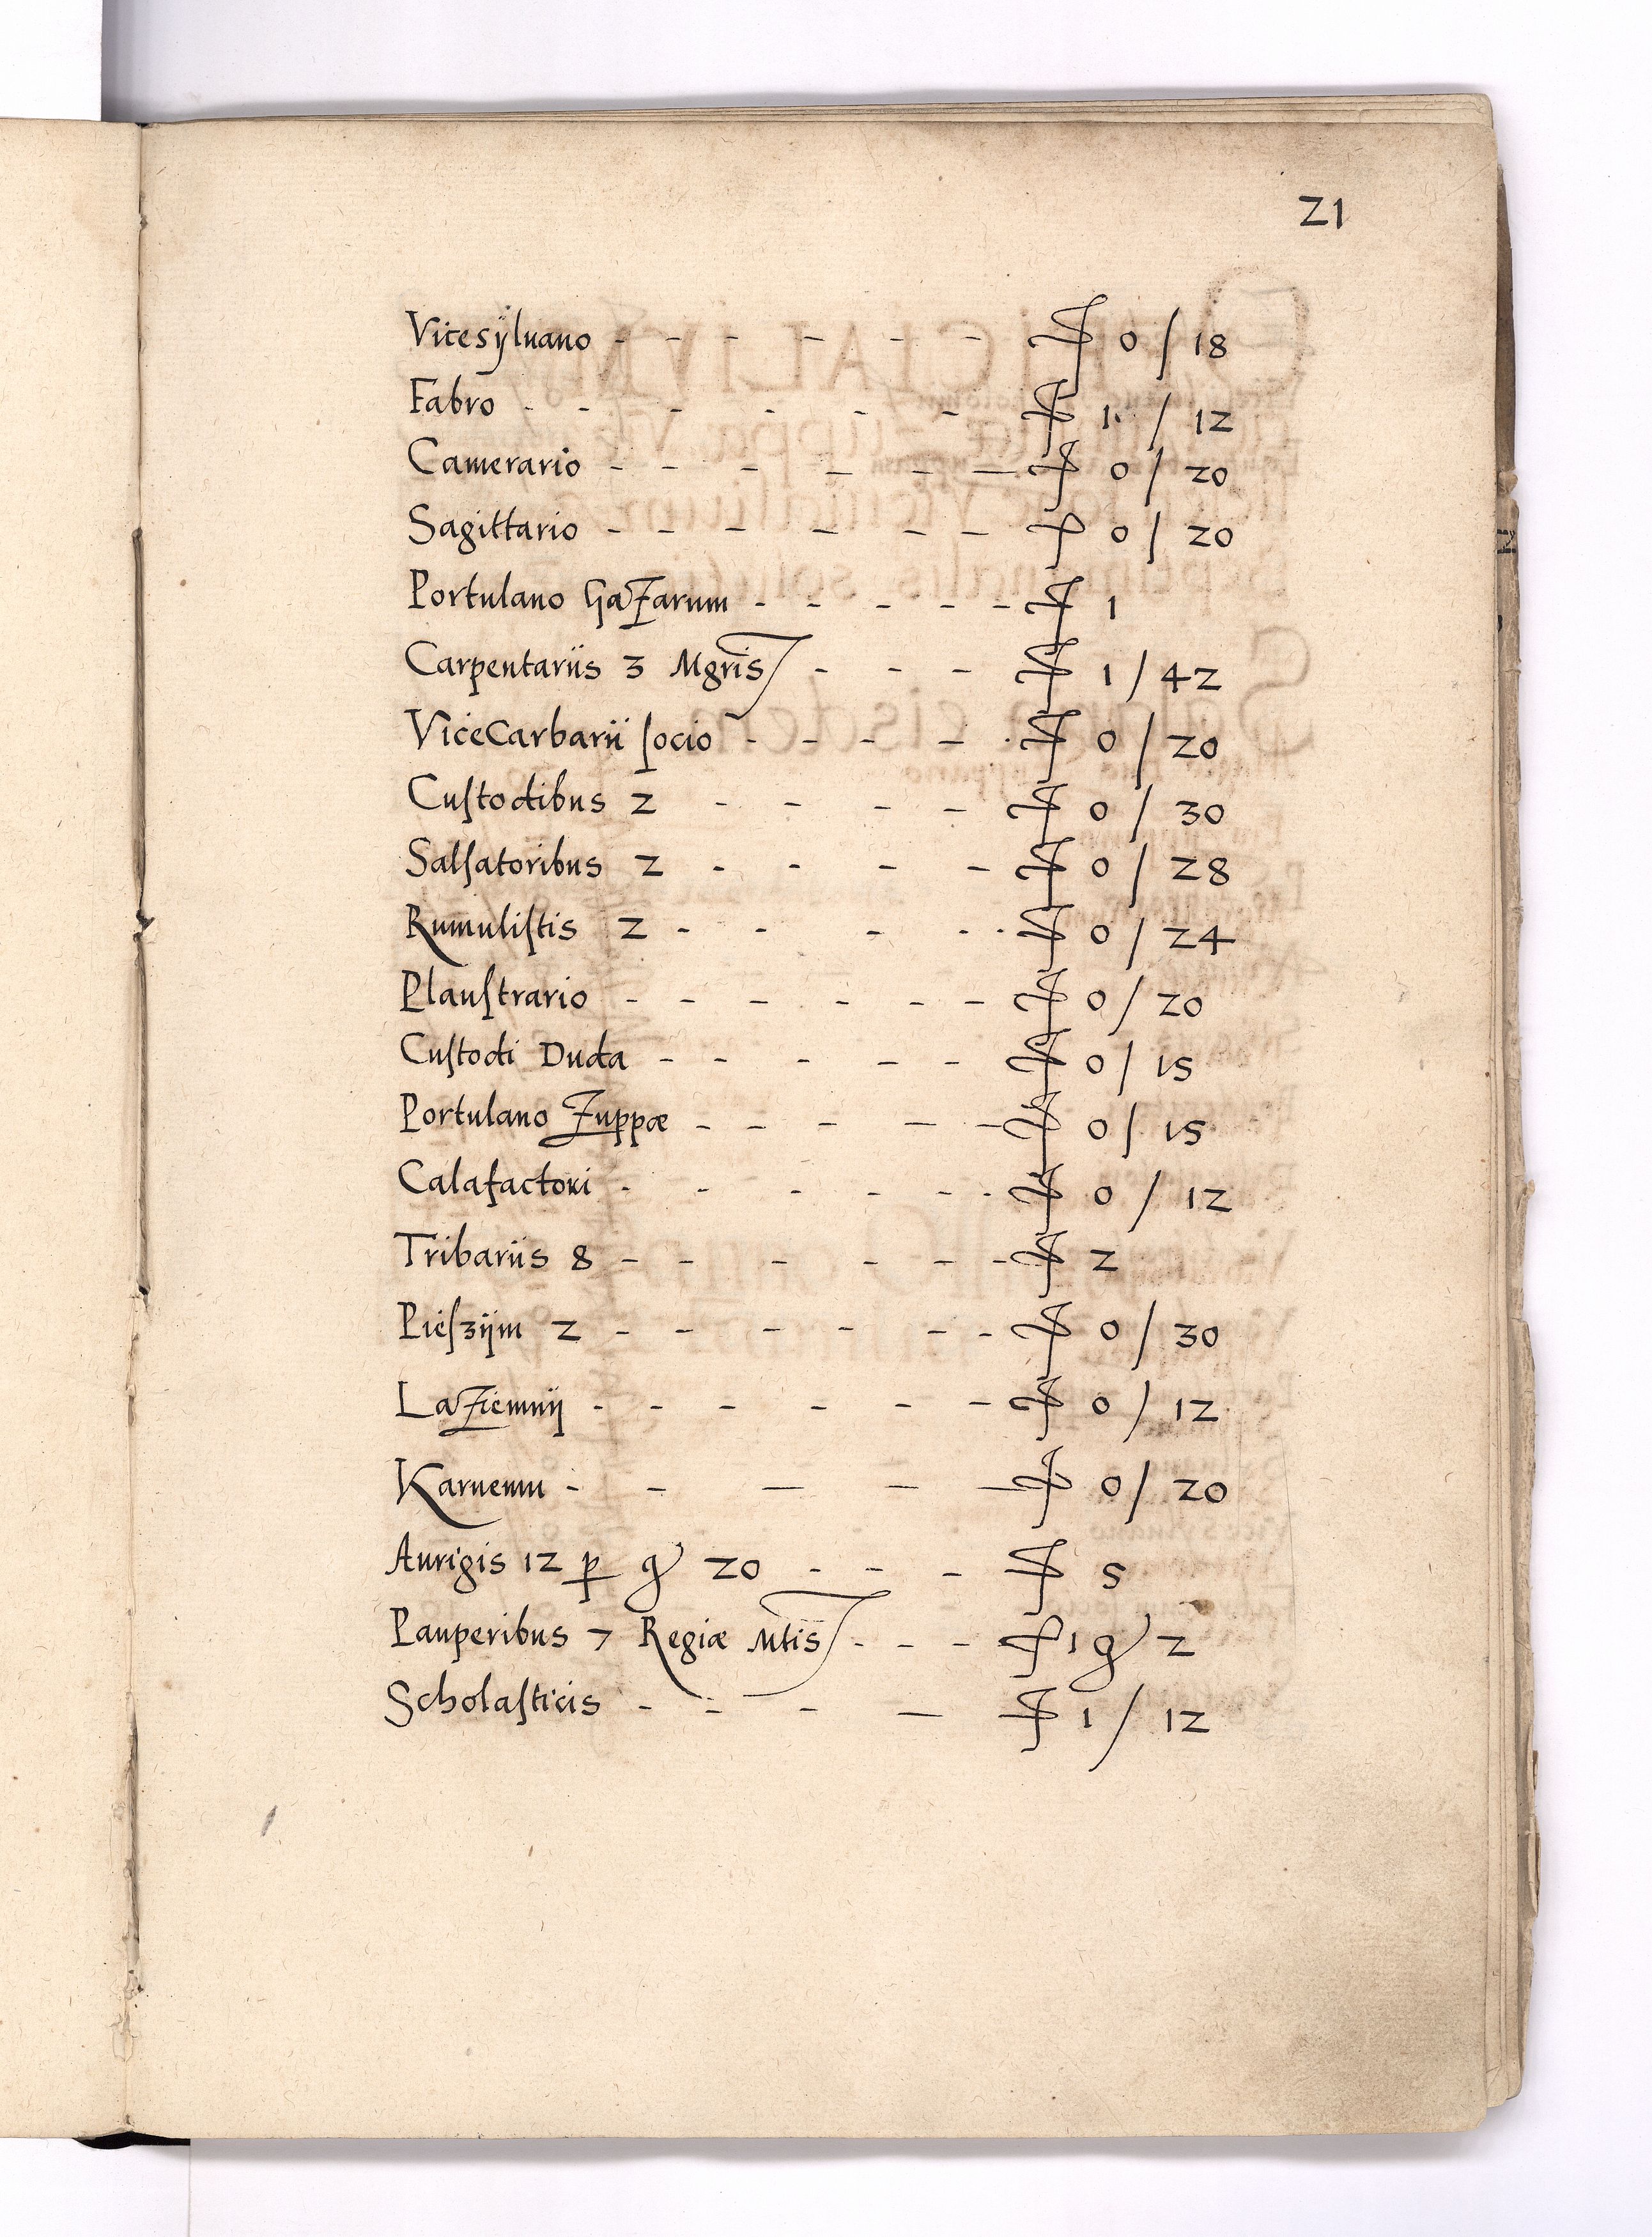 21
Vicesÿluano - - - - - - ƒ 0 / 18
Fabro - - - - - - ƒ 1 / 12
Camerario - - - - - - ƒ 0 / 20
Sagittario - - - - - - ƒ 0 / 20
Portulano Gazarum - - - - - ƒ 1
Carpentariis 3 Mgris - - - ƒ 1 / 42
ViceCarbarii ſocio - - - - ƒ 0 / 20
Cuſtodibus 2 - - - - ƒ 0 / 30
Salſatoribus 2 - - - - ƒ 0 / 28
Rumuliſtis 2 - - - - ƒ 0 / 24
Plauſtrario - - - - - - ƒ 0 / 20
Cuſtodi Duda - - - - - ƒ 0 / 15
Portulano Zuppæ - - - - - ƒ 0 / 15
Calafactori - - - - - - ƒ 0 / 12
Tribariis 8 - - - - - - ƒ 2
Pieſzÿm 2 - - - - - - ƒ 0 / 30
Laziemnÿ - - - - - - ƒ 0 / 12
Karuemu - - - - - ƒ 0 / 20
Aurigis 12 p gͬ 20 - - - ƒ 5
Pauperibus 7 Regiæ Mtis - - - ƒ 1 gͬ 2
Scholaſticis - - - - ƒ 1 / 12